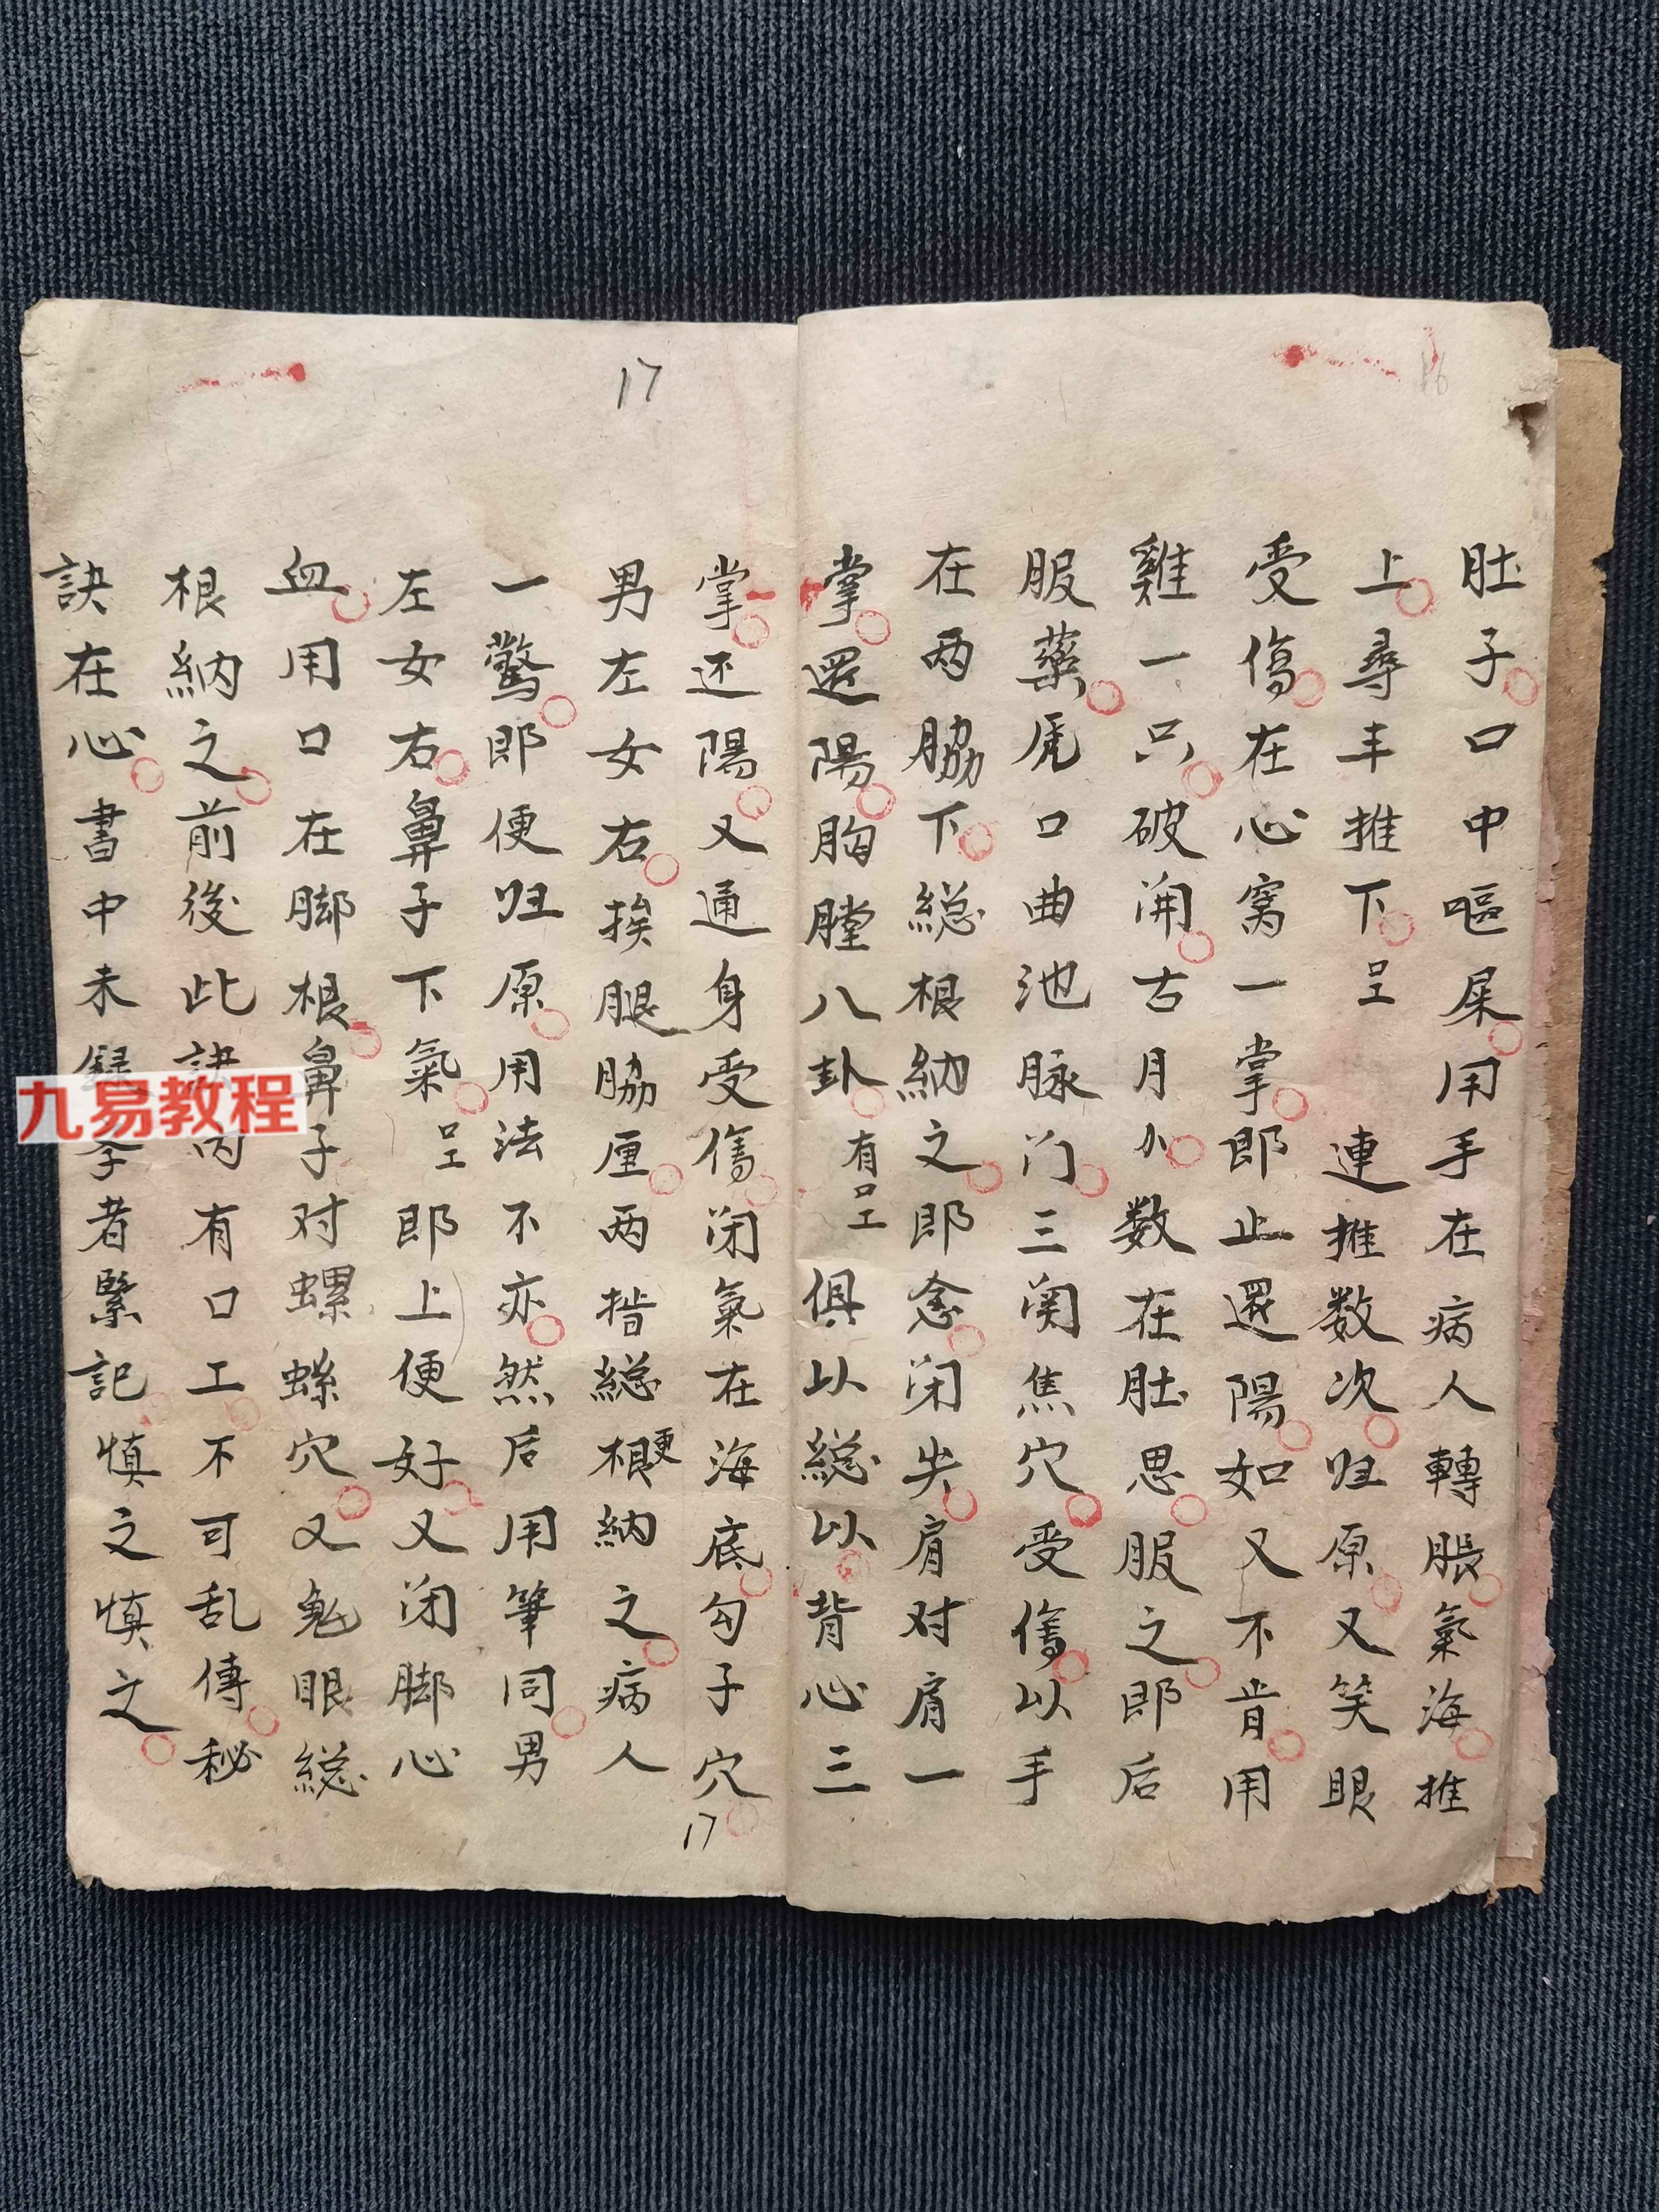 16
肚子口中嘔屎用手在病人轉脹氣海推
上尋丰推下口工連推数次归原又笑眼
受傷在心窩一掌即止還陽如又不肯用
雞一只破開古月小数在肚思服之即后
服藥虎口曲池脉门三関焦穴受傷以手
在两脇下総根納之即念闭失肩对肩一
掌還陽胸膛八卦有口工俱以総以背心三
17
掌还陽又通身受傷闭氣在海底勾子穴
男左女右挨腿脇厘两指総根更納之病人
一驚即便归原用法不亦然后用筆同男
左女右鼻子下氣口工即上便好又闭脚心
血用口在脚根鼻子对螺蛳穴又鬼眼総
根納之前後此訣内有口工不可乱傳秘
訣在心書中未録学者緊記慎之慎之
17
九易教程